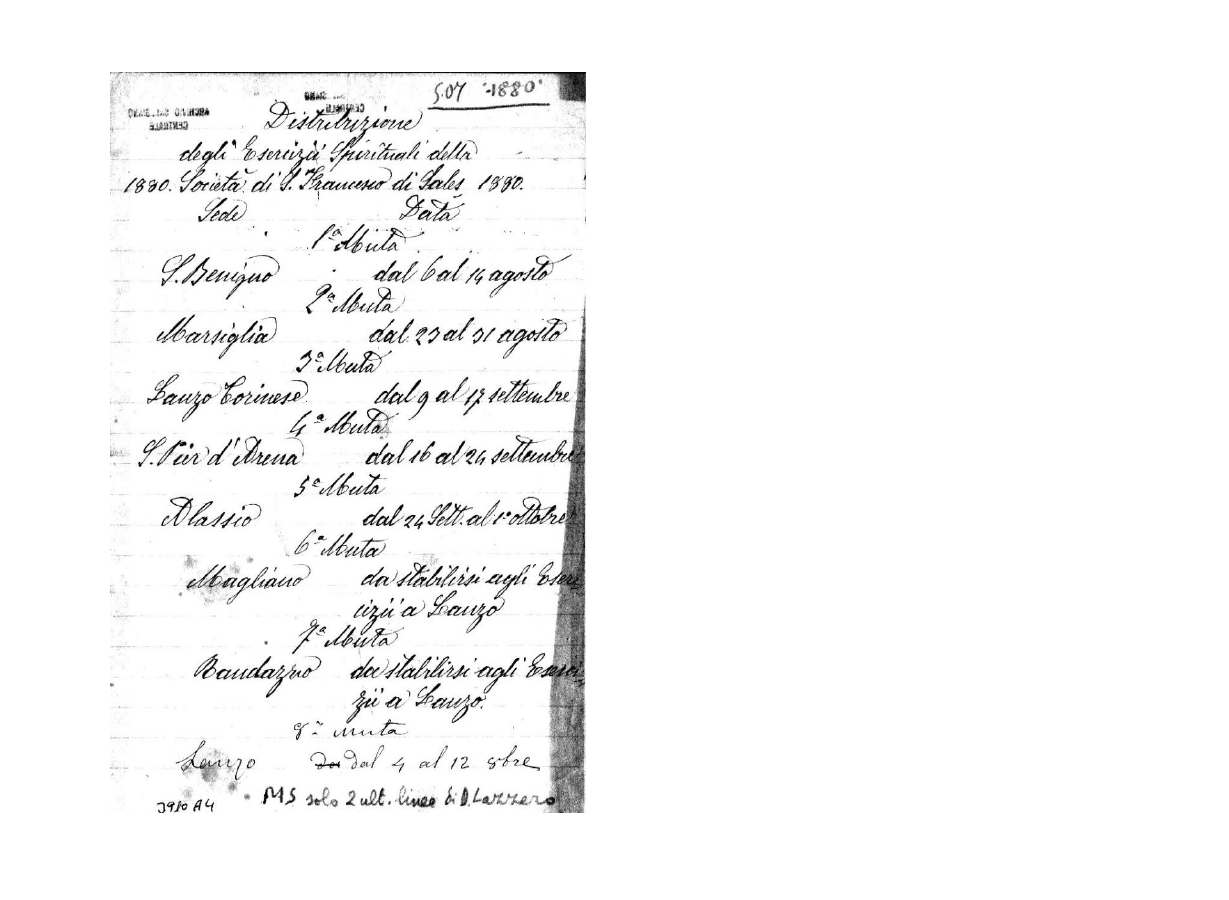 S.07 -1880-
ARCHIVIO SALESIANO
CENTRALE
CENTRALE
Distribuzione
degli Esercizii Spirituali della
1880. Società di S. Francesco di Sales 1880.
Sede Data
1ª Muta
S. Benigno dal 6 al 14 agosto
2ª Muta
Marsiglia dal 23 al 31 agosto
3ª Muta
Lanzo Torinese dal 9 al 17 settembre
4ª Muta
S. Pier d'Arena dal 16 al 24 settembre
5ª Muta
Alassio dal 24 Sett. al 1º ottobre
6ª Muta
Magliano da stabilirsi agli Eser-
cizii a Lanzo
7ª Muta
Randazzo da stabilirsi agli Eserci-
zii a Lanzo.
8ª muta
Lanzo da dal 4 al 12 8bre
MS solo 2 ult. linee di D. Lazzero
3980 A4